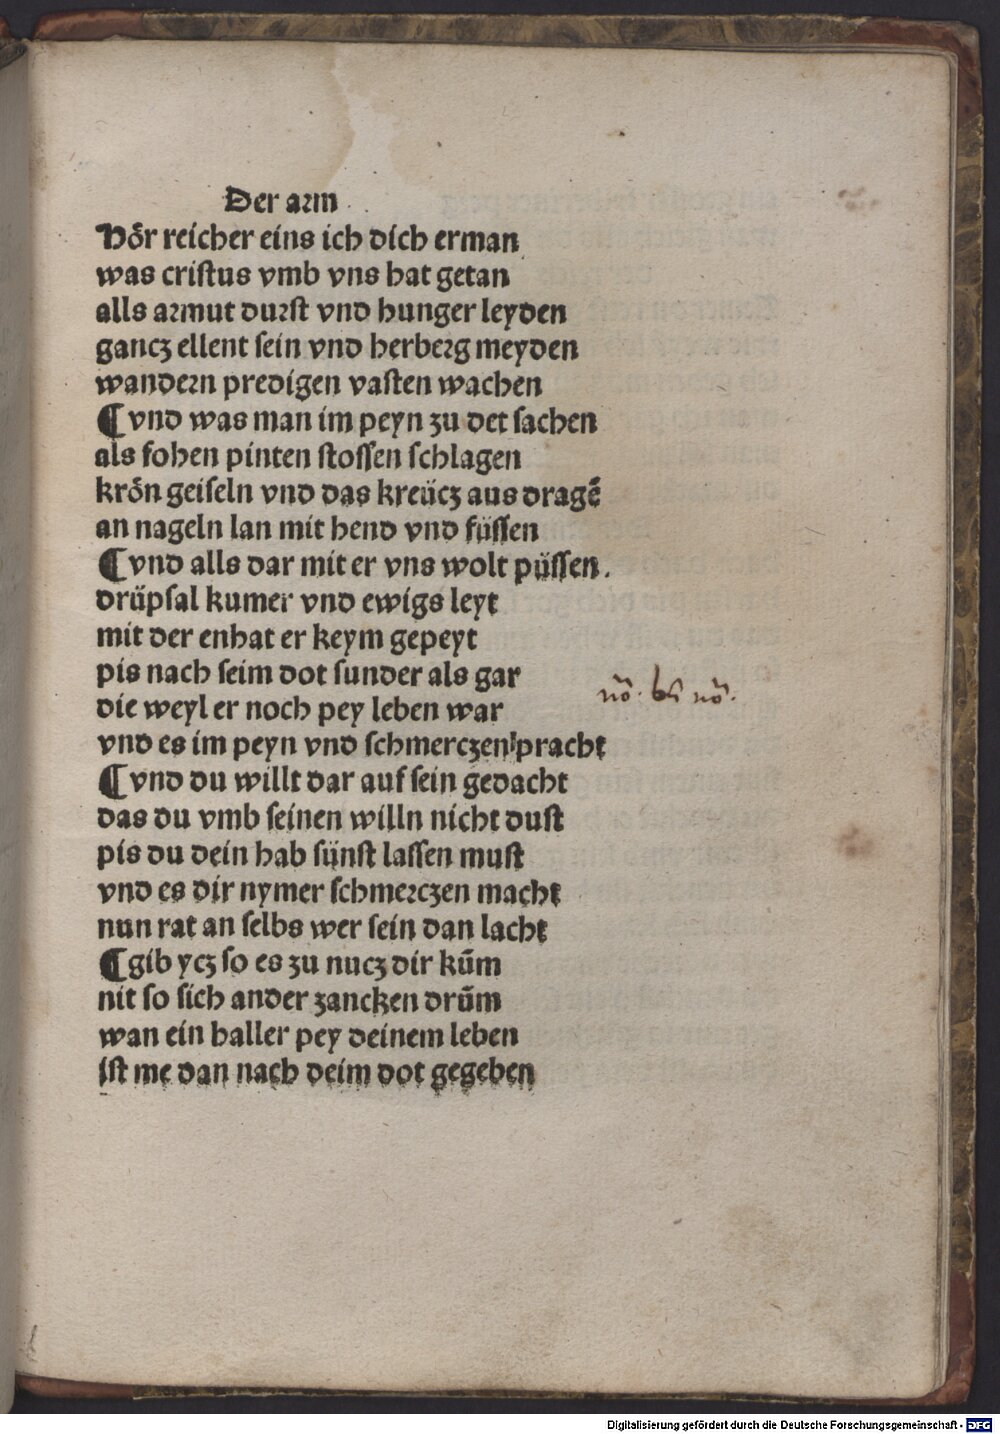 Der arm
Hör reicher eins ich dich erman
was cristus vmb vns hat getan
alls armut durst vnd hunger leyden
gancz ellent sein vnd herberg meyden
wandern predigen vasten wachen
¶ vnd was man im peyn zu det sachen
als fohen pinten stossen schlagen
krön geiseln vnd das kreücz aus dragē
an nageln lan mit hend vnd füssen
¶ vnd alls dar mit er vns wolt püssen.
drüpsal kumer vnd ewigs leyt
mit der enhat er keym gepeyt
pis nach seim dot sunder als gar
die weyl er noch pey leben war
vnd es im peyn vnd schmerczen pracht
¶ vnd du willt dar auf sein gedacht
das du vmb seinen willn nicht dust
pis du dein hab sünst lassen must
vnd es dir nymer schmerczen macht
nun rat an selbs wer sein dan lacht
¶ gib ycz so es zu nucz dir kūm
nit so sich ander zancken drūm
wan ein haller pey deinem leben
ist me dan nach deim dot gegeben
Digitalisierung gefördert durch die Deutsche Forschungsgemeinschaft - DFG